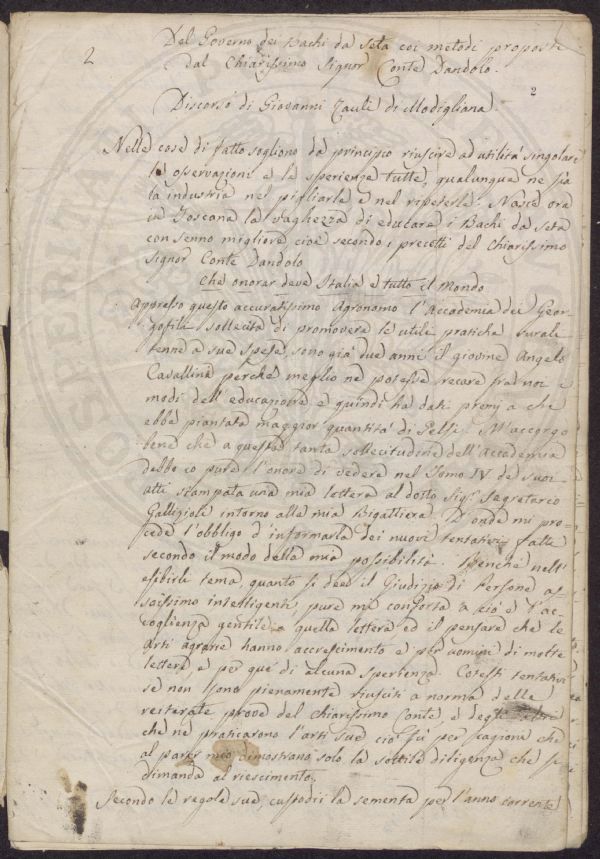 2
Del Governo dei Bachi da Seta coi metodi proposti
dal Chiarissimo Signor Conte Dandolo.
2
Discorso di Giovanni Zauli di Modigliana.
Nelle cose di fatto sogliono da principio riuscire ad utilità singolare
le osservazioni e le sperienze tutte, qualunque ne sia
la industria nel pigliarle e nel ripeterle. Nasce ora
in Toscana la vaghezza di educare i Bachi da seta
con senno migliore cioè secondo i precetti del Chiarissimo
Signor Conte Dandolo
Che onorar deve Italia e tutto il Mondo
Appresso questo accuratissimo Agronomo l'Accademia dei Geor-
gofili sollecita di promovere le utili pratiche rurali
tenne a sue spese, sono già due anni il giovine Angelo
Cavallina perchè meglio ne potesse recare fra noi i
modi dell'educazione e quindi ha dati premj a chi
ebbe piantata maggior quantità di Gelsi. M'accorgo
bene che a questa tanta sollecitudine dell'Accademia
debbo io pure l'onore di vedere nel Tomo IV de suoi
atti stampata una mia lettera al dotto Sig.r Segretario
Gallizioli intorno alla mia Bigattiera. D'onde mi pro-
cede l'obbligo d'informarla dei nuovi tentativi fatti
secondo il modo della mia possibilità. Benchè nell'
esibirli tema quanto si dee il Giudizio di Persone as-
saissimo intelligenti, pure mi conforta a ciò e l'ac-
coglienza gentile a quella lettera ed il pensare che le
Arti agrarie hanno accrescimento e per uomini di molte
lettere, e per que' di alcuna sperienza. Cotesti tentativi
se non sono pienamente riusciti a norma delle
reiterate prove del Chiarissimo Conte e degli altri
che ne praticarono l'arti sue ciò fu per cagioni che
al parer mio dimostrano solo la sottile diligenza che si
dimanda al riescimento.
Secondo le regole sue, custodii la sementa per l'anno corrente